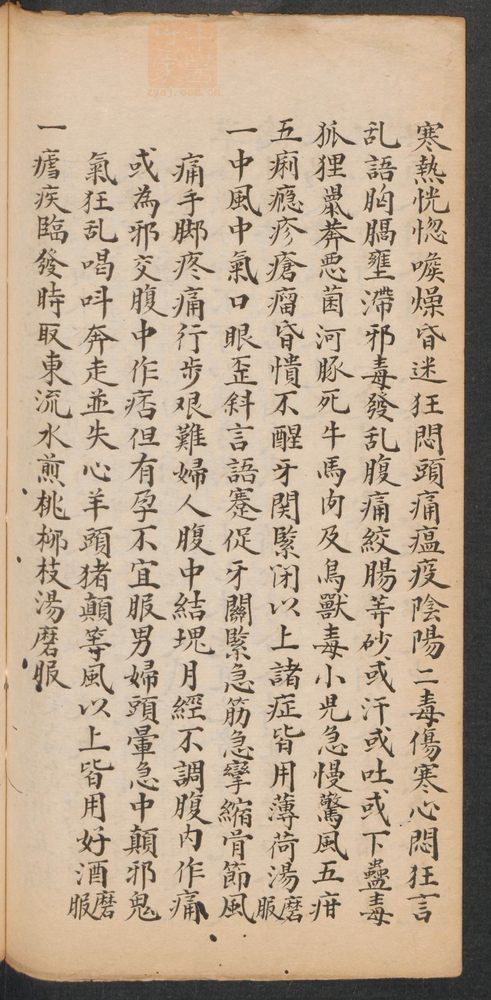 寒熱恍惚喉燥昏迷狂悶頭痛瘟疫陰陽二毒傷寒心悶狂言
乱語胸膈壅滯邪毒發乱腹痛絞腸等砂或汗或吐或下蠱毒
狐狸鼠莽惡菌河豚死牛馬肉及鳥獸毒小児急慢驚風五疳
五痢瘾疹瘡瘤昏憒不醒牙関緊闭以上諸症皆用薄荷湯磨服
一中風中氣口眼歪斜言語蹇促牙關緊急筋急攣縮骨節風
痛手脚疼痛行步艰難婦人腹中結塊月經不調腹内作痛
或為邪交腹中作痞但有孕不宜服男婦頭暈急中顛邪鬼
氣狂乱喝呌奔走並失心羊頭猪顛等風以上皆用好酒磨服
一瘧疾臨發時取東流水煎桃柳枝湯磨服